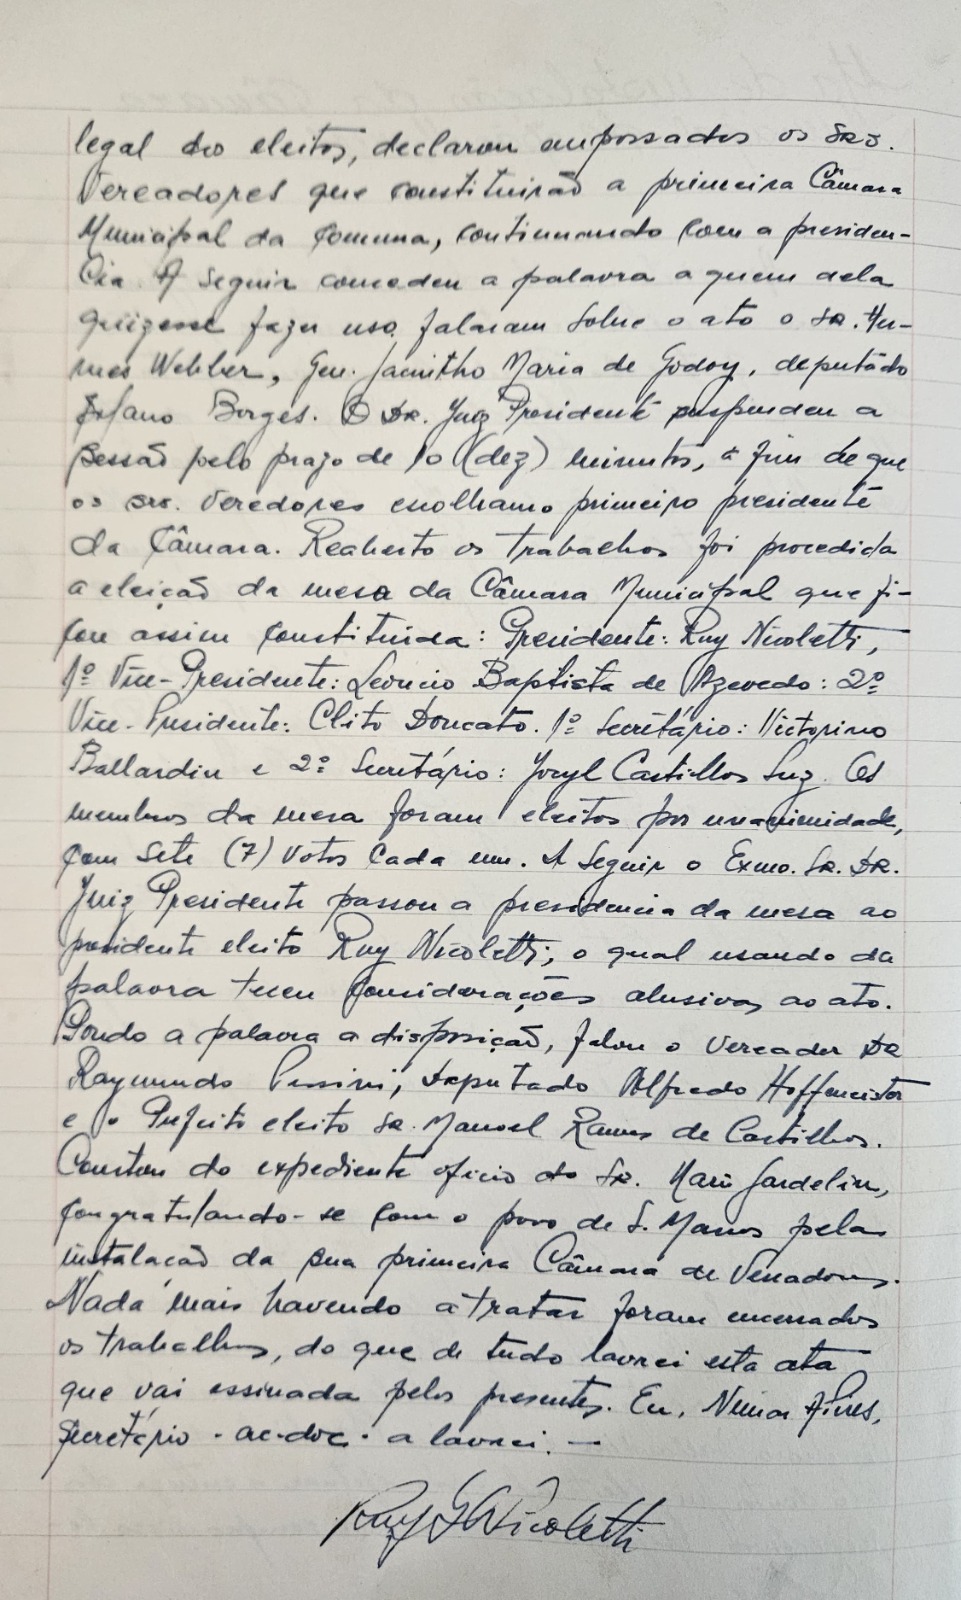 legal dos eleitos, declarou empossados os Srs.
Vereadores que constituirão a primeira Câmara
Municipal da Comuna, continuando com a presiden-
cia. A seguir concedeu a palavra a quem dela
quizesse fazer uso, falaram sobre o ato o Sr. Her-
mes Webber, Gen. Jacintho Maria de Godoy, deputado
Borges. O Dr. Juiz Presidente suspendeu a
sessão pelo prazo de 10 (dez) minutos, a fim de que
os srs. Veredores escolham o primeiro presidente
da Câmara. Reaberto os trabalhos foi procedida
a eleição da mesa da Câmara Municipal que fi-
cou assim constituida: Presidente: Ruy Nicoletti,
1º Vice-Presidente: Leoncio Baptista de Azevedo: 2º
Vice-Presidente: Clito Doncato. 1º Secretário: Victorino
Ballardin e 2º Secretário: Joryl Castilhos Luz. Os
membros da mesa foram eleitos por unanimidade,
com sete (7) votos cada um. A seguir o Exmo. Sr. Dr.
Juiz Presidente passou a presidencia da mesa ao
presidente eleito Ruy Nicoletti, o qual usando da
palavra teceu considerações alusivas ao ato.
Pondo a palavra a disposição, falou o Vereador Dr
Raymundo Pessini, Deputado Alfredo Hoffmeister
e o Prefeito eleito Sr. Manoel Ramos de Castilhos.
Constou do expediente oficio do Sr. Mario Gardelin,
congratulando-se com o povo de S. Marcos pela
instalacão da sua primeira Câmara de Vereadores.
Nada mais havendo a tratar foram encerrados
os trabalhos, do que de tudo lavrei esta ata
que vai assinada pelos presentes. Eu, Pires,
Secretário - ac-doc - a lavrei. —
Ruy G Nicoletti